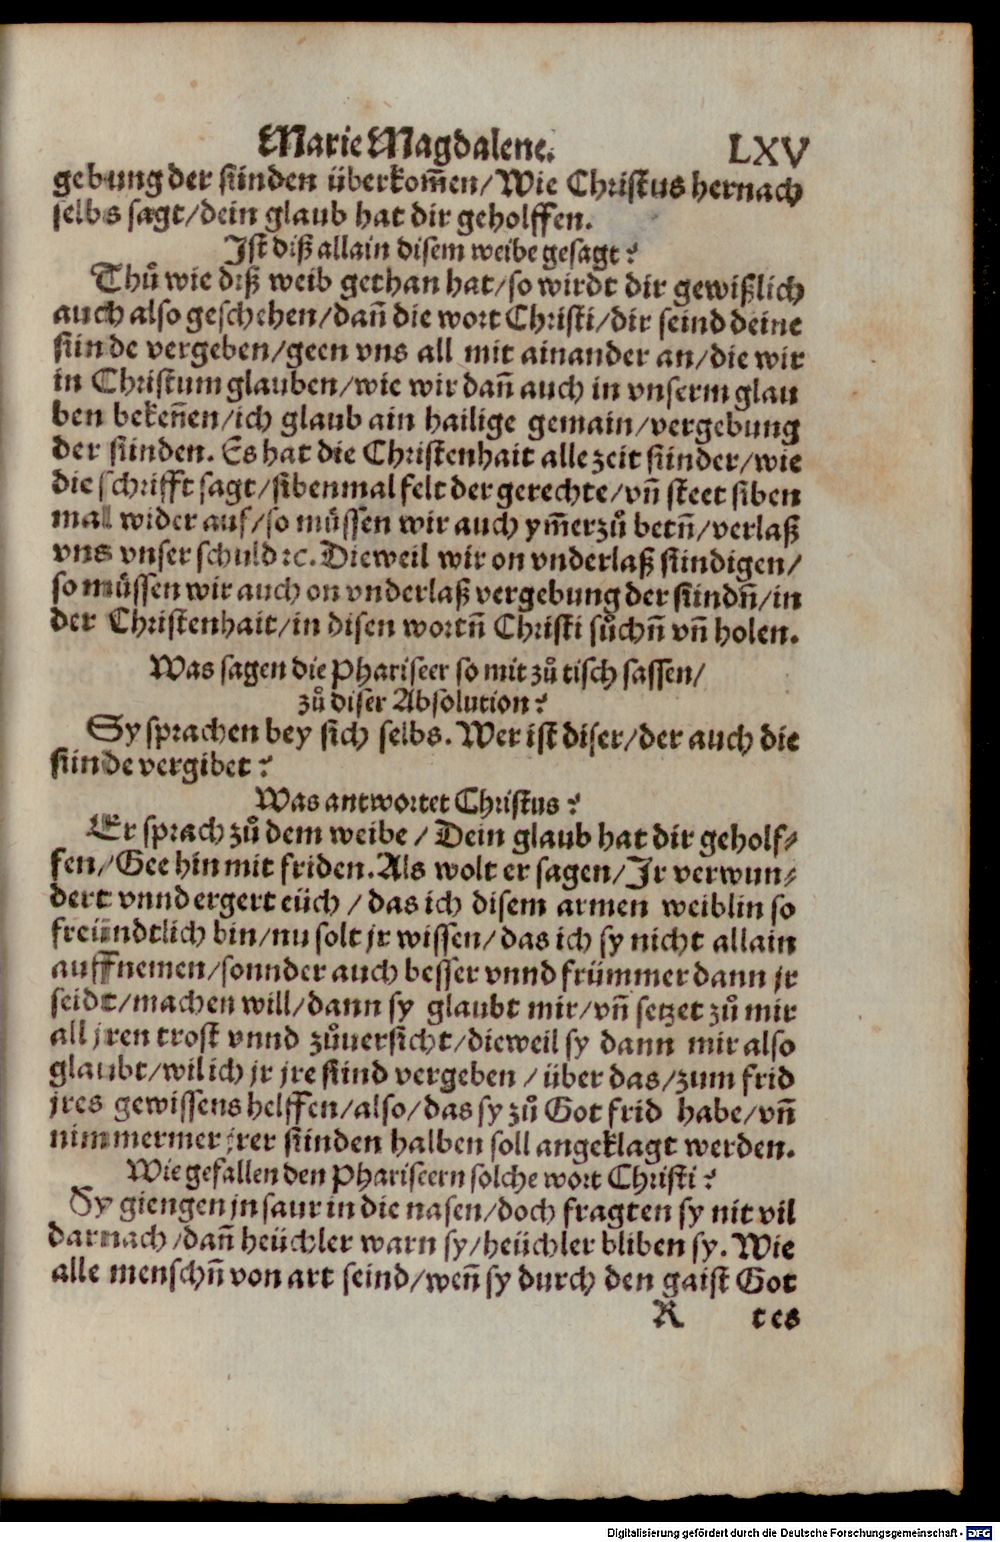 Marie Magdalene. LXV
gebung der sünden überkom̃en/Wie Christus hernach
selbs sagt/dein glaub hat dir geholffen.
Ist diß allain disem weibe gesagt?
Thů wie diß weib gethan hat/so wirdt dir gewißlich
auch also geschehen/dañ die wort Christi/dir seind deine
sünde vergeben/geen vns all mit ainander an/die wir
in Christum glauben/wie wir dañ auch in vnserm glau
ben bekeñen/ich glaub ain hailige gemain/vergebung
der sünden. Es hat die Christenhait alle zeit sünder/wie
die schrifft sagt/sibenmal felt der gerechte/vñ steet siben
mal wider auf/so müssen wir auch ym̃erzů betñ/verlaß
vns vnser schuld ꝛc. Dieweil wir on vnderlaß sündigen/
so müssen wir auch on vnderlaß vergebung der sündñ/in
der Christenhait/in disen wortñ Christi sůchñ vñ holen.
Was sagen die Phariseer so mit zů tisch sassen/
zů diser Absolution?
Sy sprachen bey sich selbs. Wer ist diser/der auch die
sünde vergibet?
Was antwortet Christus?
Er sprach zů dem weibe/Dein glaub hat dir geholf⸗
fen/Gee hin mit friden. Als wolt er sagen/Jr verwun⸗
dert vnnd ergert eüch/das ich disem armen weiblin so
freündtlich bin/nu solt jr wissen/das ich sy nicht allain
auffnemen/sonnder auch besser vnnd frümmer dann jr
seidt/machen will/dann sy glaubt mir/vñ setzet zů mir
all jren trost vnnd zůuersicht/dieweil sy dann mir also
glaubt/wil ich jr jre sünd vergeben/über das/zum frid
jres gewissens helffen/also/das sy zů Got frid habe/vñ
nimmermer jrer sünden halben soll angeklagt werden.
Wie gefallen den Phariseern solche wort Christi?
Sy giengen jn saur in die nasen/doch fragten sy nit vil
darnach/dañ heüchler warn sy/heüchler bliben sy. Wie
alle menschñ von art seind/weñ sy durch den gaist Got
R tes
Digitalisierung gefördert durch die Deutsche Forschungsgemeinschaft - DFG